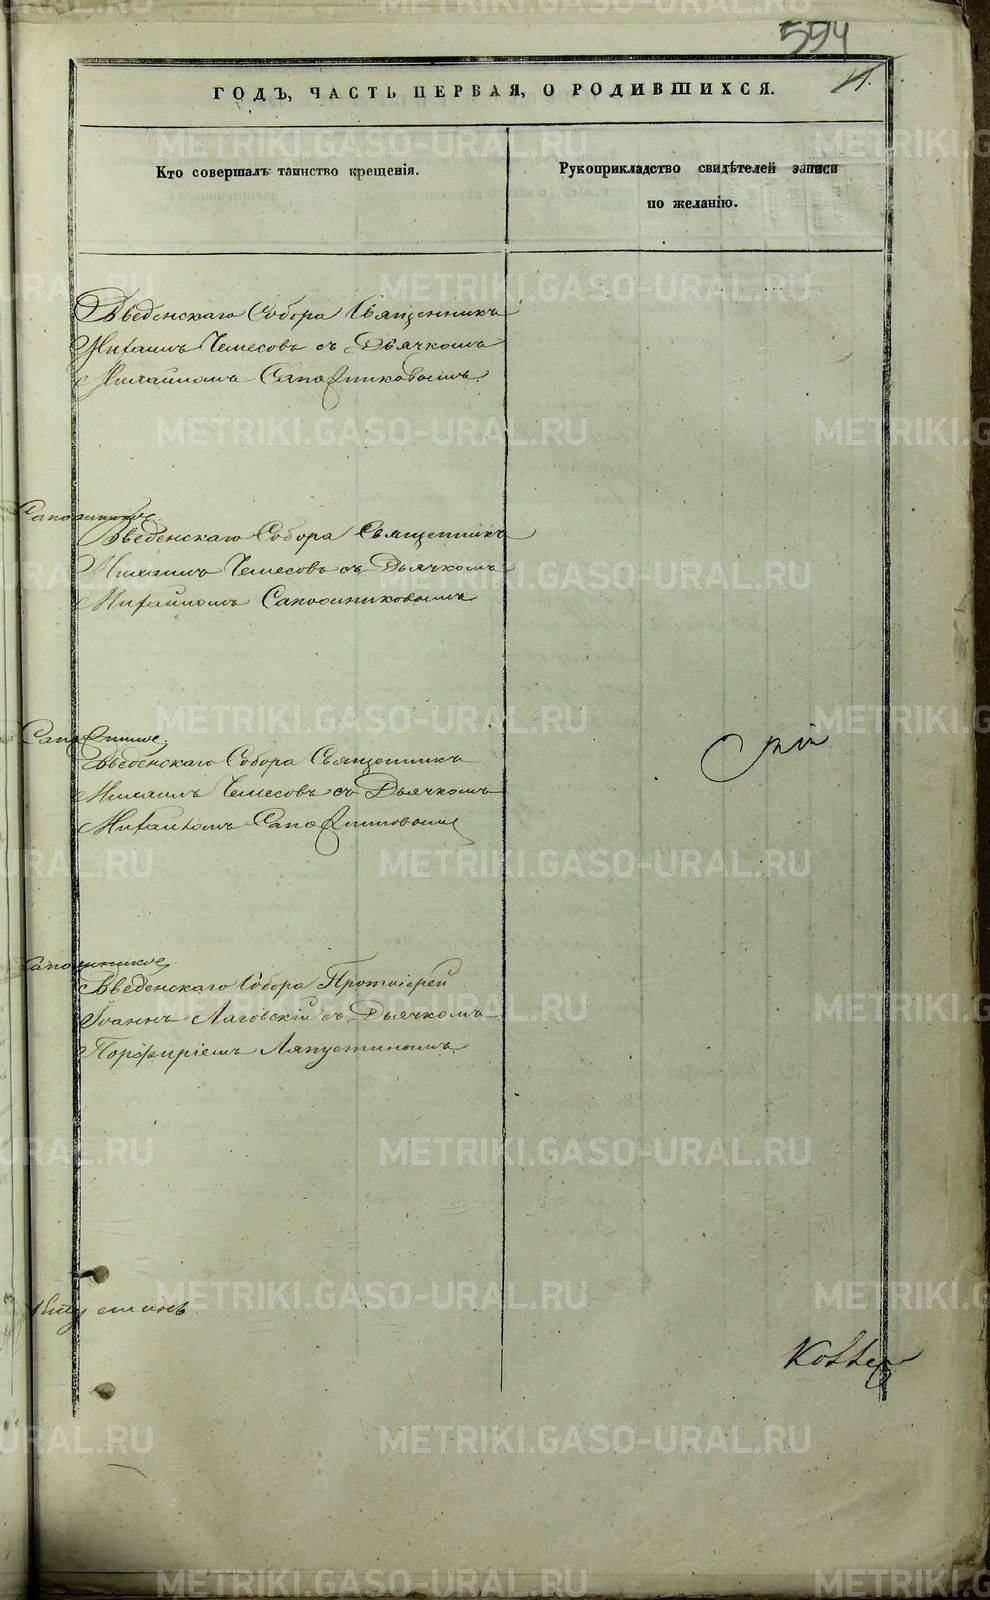 554
11.
ГОДЪ, ЧАСТЬ ПЕРВАЯ, О РОДИВШИХСЯ.
Кто совершалъ таинство крещенія.
Рукоприкладство свидѣтелей записи
по желанію.
Введенскаго Собора Священникъ
Михаилъ Чемесовъ съ Дьячкомъ
Михаиломъ Сапожниковымъ.
Введенскаго Собора Священникъ
Михаилъ Чемесовъ съ Дьячкомъ
Михаиломъ Сапожниковымъ
Введенскаго Собора Священникъ
Михаилъ Чемесовъ съ Дьячкомъ
Михаиломъ Сапожниковымъ
Введенскаго Собора Протоіерей
Іоаннъ Лаговскій съ Дьячкомъ
Порфиріемъ Ляпустинымъ.
METRIKI.GASO-URAL.RU